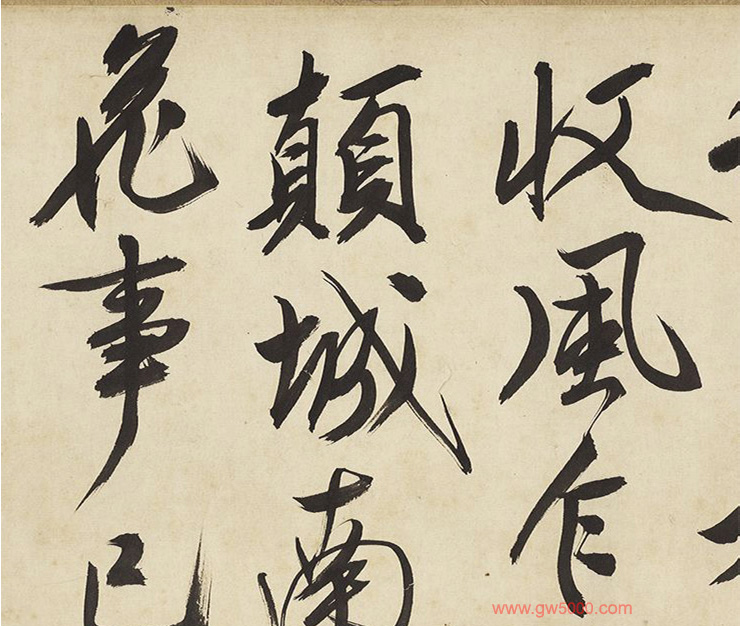 收風乍
顛城南
花事已
www.gw5000.com